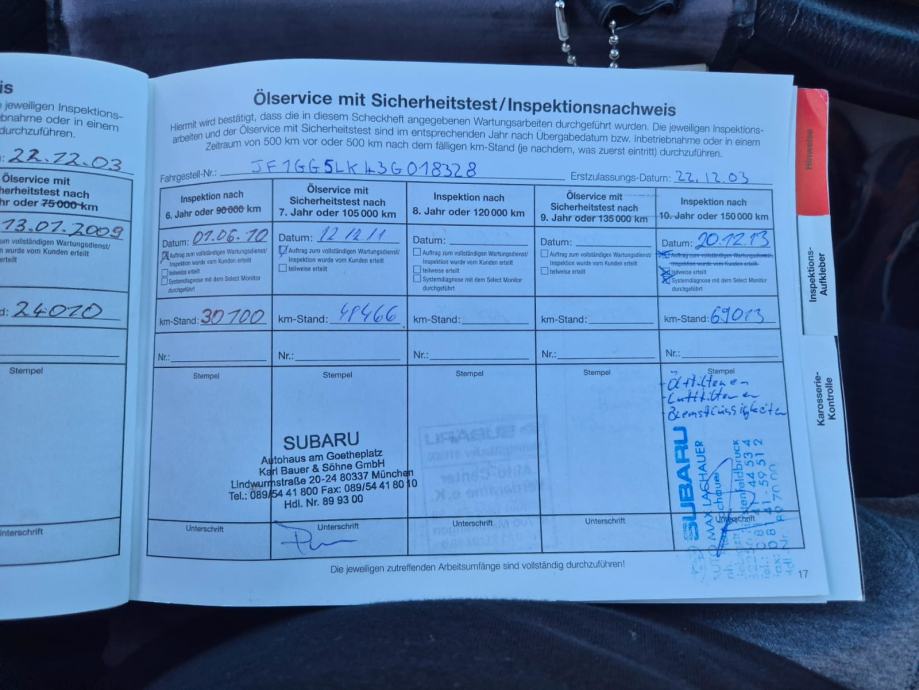 is
jeweiligen Inspektions-
bnahme oder in einem
durchzuführen.
22.12.03
Ölservice mit
herheitstest nach
hr oder 75 000 km
13.01.2009
um vollständigen Wartungsdienst/
n wurde vom Kunden erteilt
erteilt
d: 24010
Stempel
nterschrift
Ölservice mit Sicherheitstest/Inspektionsnachweis
Hiermit wird bestätigt, dass die in diesem Scheckheft angegebenen Wartungsarbeiten durchgeführt wurden. Die jeweiligen Inspektions-
arbeiten und der Ölservice mit Sicherheitstest sind im entsprechenden Jahr nach Übergabedatum bzw. Inbetriebnahme oder in einem
Zeitraum von 500 km vor oder 500 km nach dem fälligen km-Stand (je nachdem, was zuerst eintritt) durchzuführen.
Fahrgestell-Nr.: JF1GG5LK43G018328 Erstzulassungs-Datum: 22.12.03
Inspektion nach
6. Jahr oder 90 000 km
Datum: 01.06.10
Auftrag zum vollständigen Wartungsdienst/
Inspektion wurde vom Kunden erteilt
teilweise erteilt
Systemdiagnose mit dem Select Monitor
durchgeführt
km-Stand: 30100
Nr.:
Stempel
Unterschrift
Ölservice mit
Sicherheitstest nach
7. Jahr oder 105 000 km
Datum: 12.12.11
Auftrag zum vollständigen Wartungsdienst/
Inspektion wurde vom Kunden erteilt
teilweise erteilt
km-Stand: 48466
Nr.:
Stempel
SUBARU
Autohaus am Goetheplatz
Karl Bauer & Söhne GmbH
Lindwurmstraße 20-24 80337 München
Tel.: 089/54 41 800 Fax: 089/54 41 80 10
Hdl. Nr. 89 93 00
Unterschrift
Inspektion nach
8. Jahr oder 120 000 km
Datum:
Auftrag zum vollständigen Wartungsdienst/
Inspektion wurde vom Kunden erteilt
teilweise erteilt
Systemdiagnose mit dem Select Monitor
durchgeführt
km-Stand:
Nr.:
Stempel
Unterschrift
Ölservice mit
Sicherheitstest nach
9. Jahr oder 135 000 km
Datum:
Auftrag zum vollständigen Wartungsdienst/
Inspektion wurde vom Kunden erteilt
teilweise erteilt
km-Stand:
Nr.:
Stempel
Unterschrift
Inspektion nach
10. Jahr oder 150 000 km
Datum: 20.12.13
Auftrag zum vollständigen Wartungsdienst/
Inspektion wurde vom Kunden erteilt
teilweise erteilt
Systemdiagnose mit dem Select Monitor
durchgeführt
km-Stand: 69013
Nr.:
Stempel
Luftfilter
Bremsflüssigkeit
SUBARU
MAX LACHAUER
Unterschrift
Die jeweiligen zutreffenden Arbeitsumfänge sind vollständig durchzuführen!
17
Hinweise
Inspektions-
Aufkleber
Karosserie-
Kontrolle